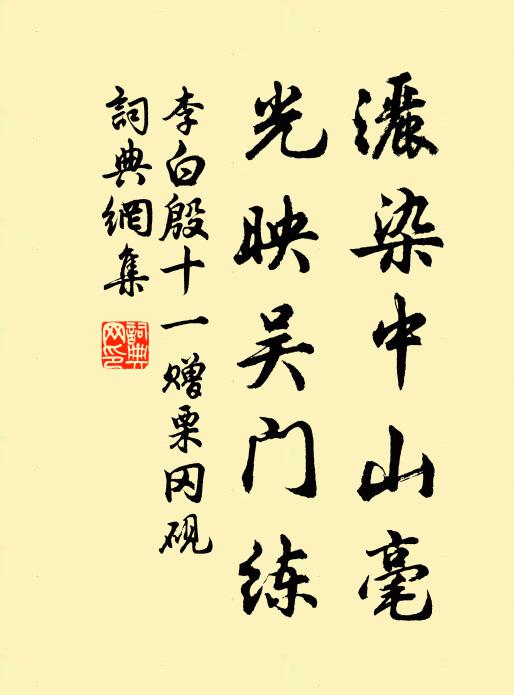 灑染中山毫
光映吴门练
李白殷十一赠栗冈砚
詞典網集
詞典网印